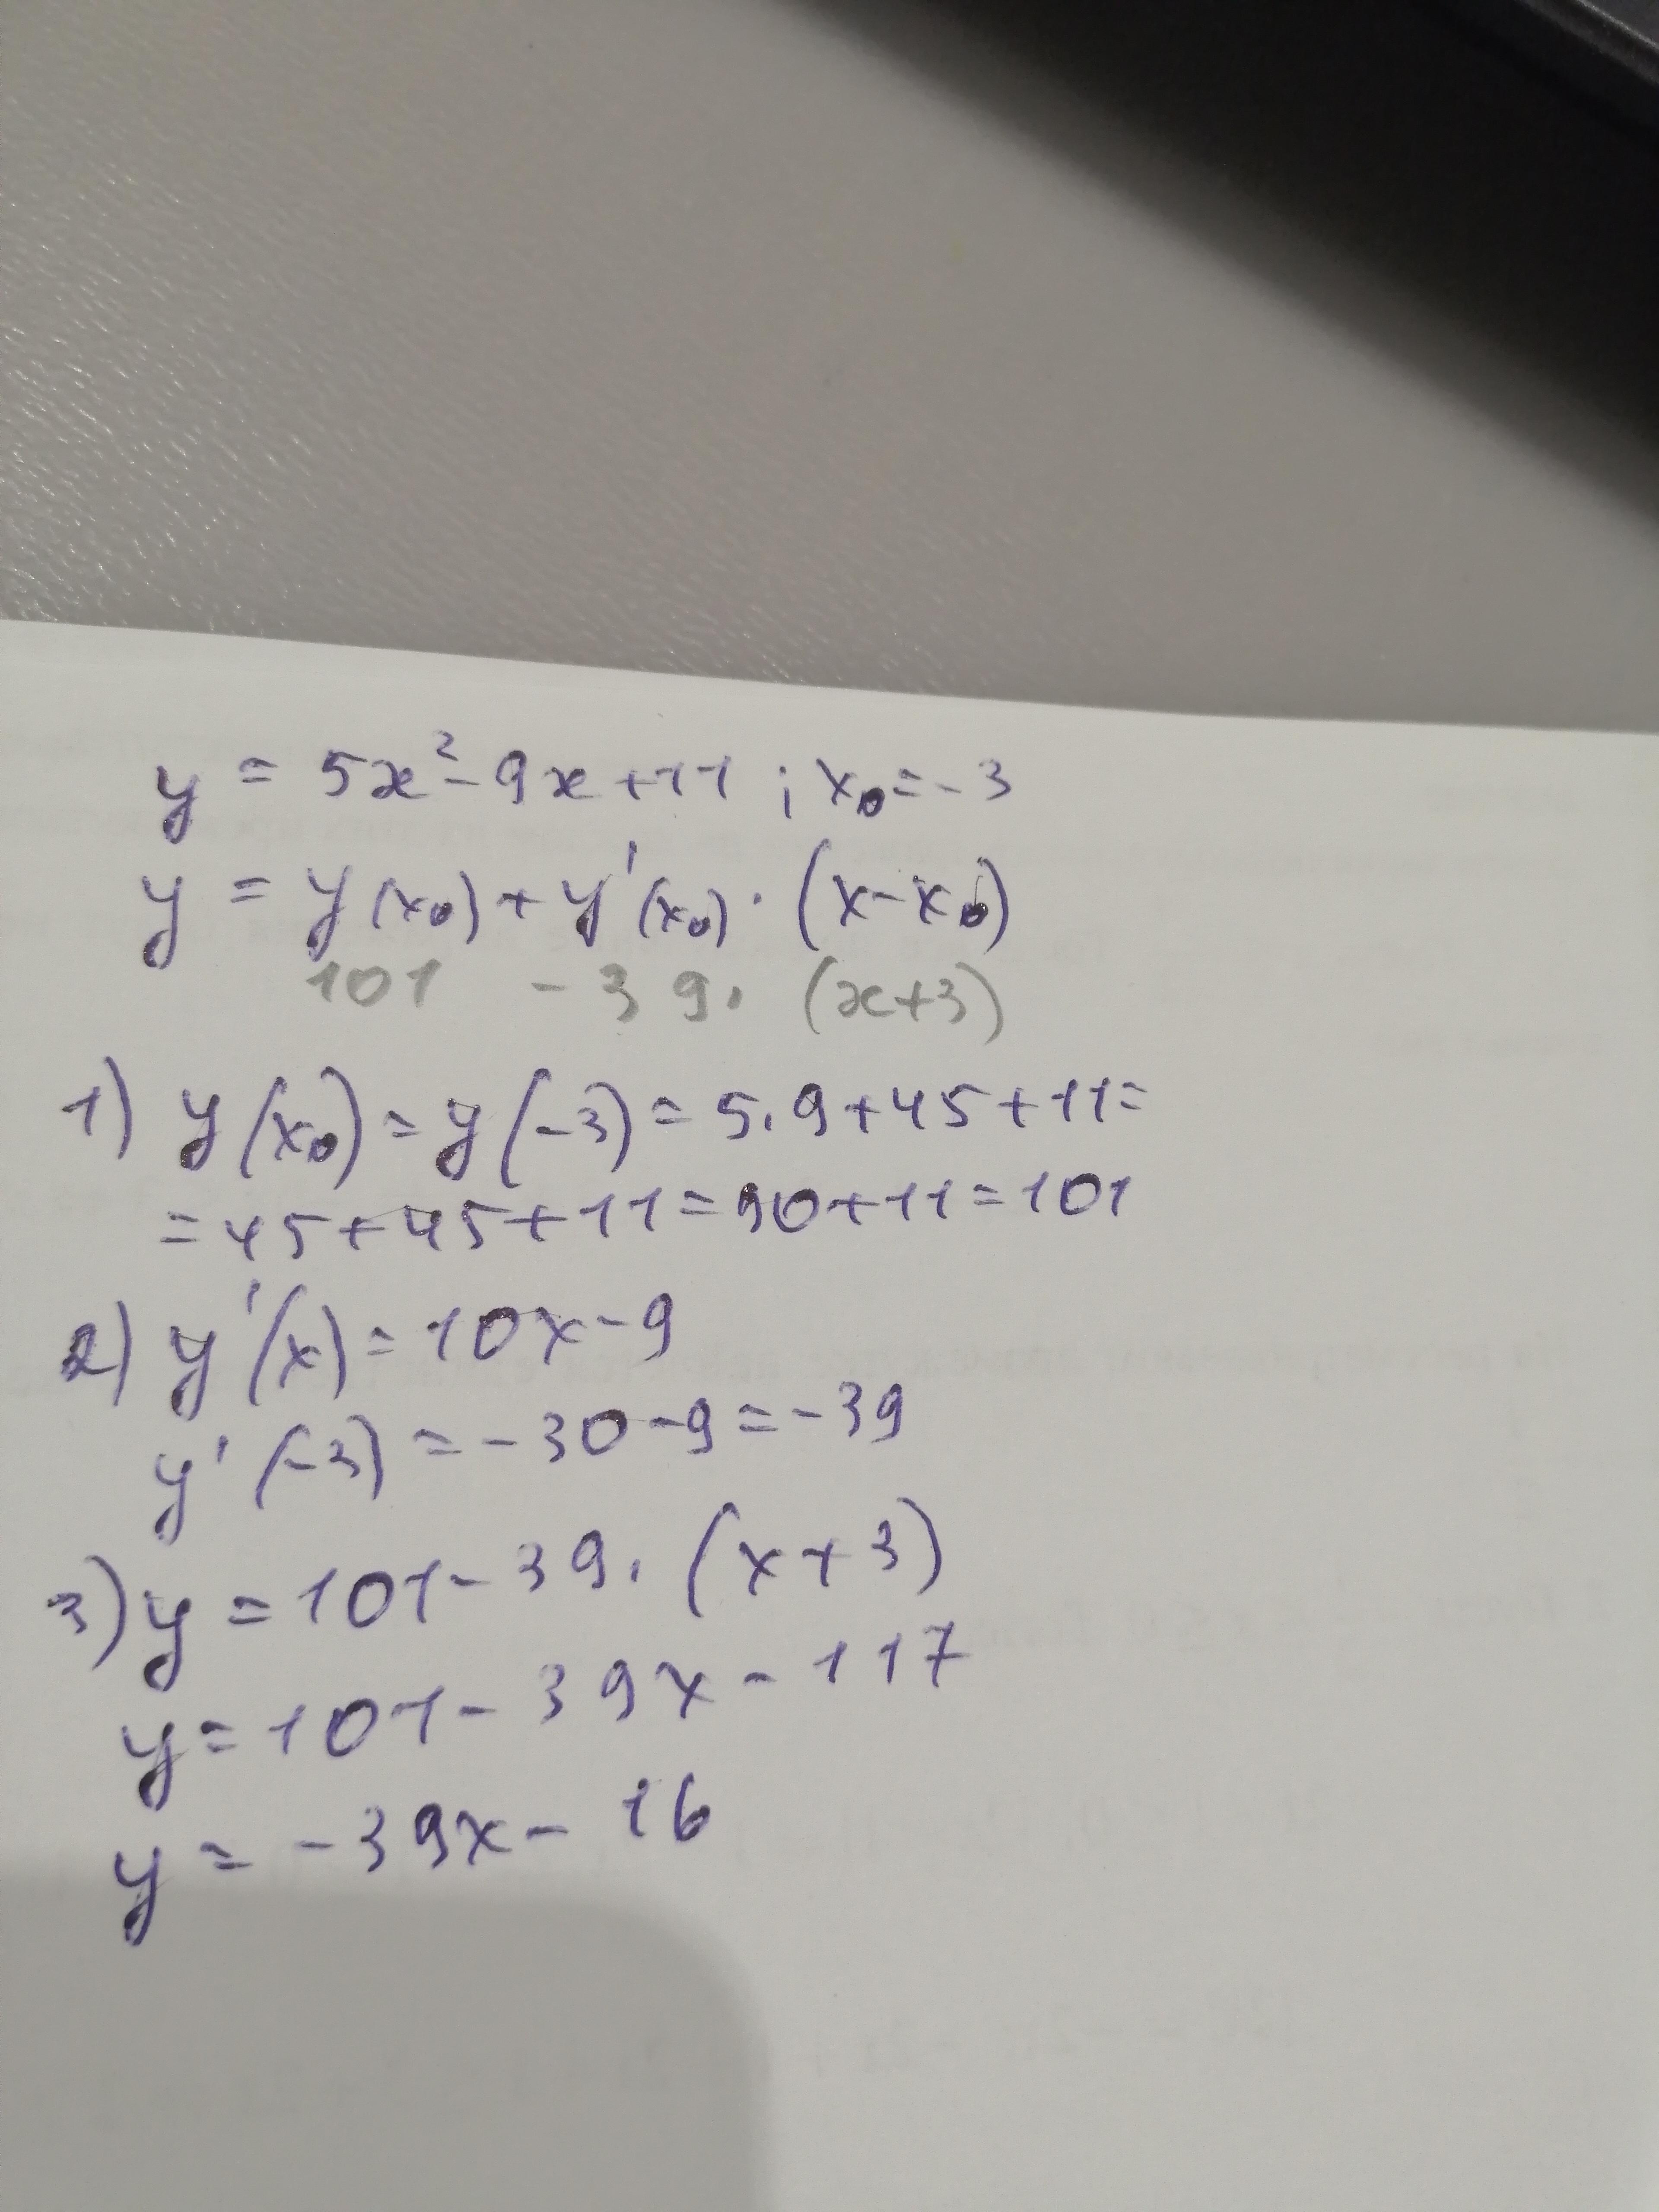 y = 5x² - 9x + 11 ; x₀ = -3
y = y(x₀) + y'(x₀) · (x - x₀)
101 - 39 · (x + 3)
1) y(x₀) = y(-3) = 5 · 9 + 45 + 11 =
= 45 + 45 + 11 = 90 + 11 = 101
2) y'(x) = 10x - 9
y'(-3) = -30 - 9 = -39
3) y = 101 - 39 · (x + 3)
y = 101 - 39x - 117
y = -39x - 16